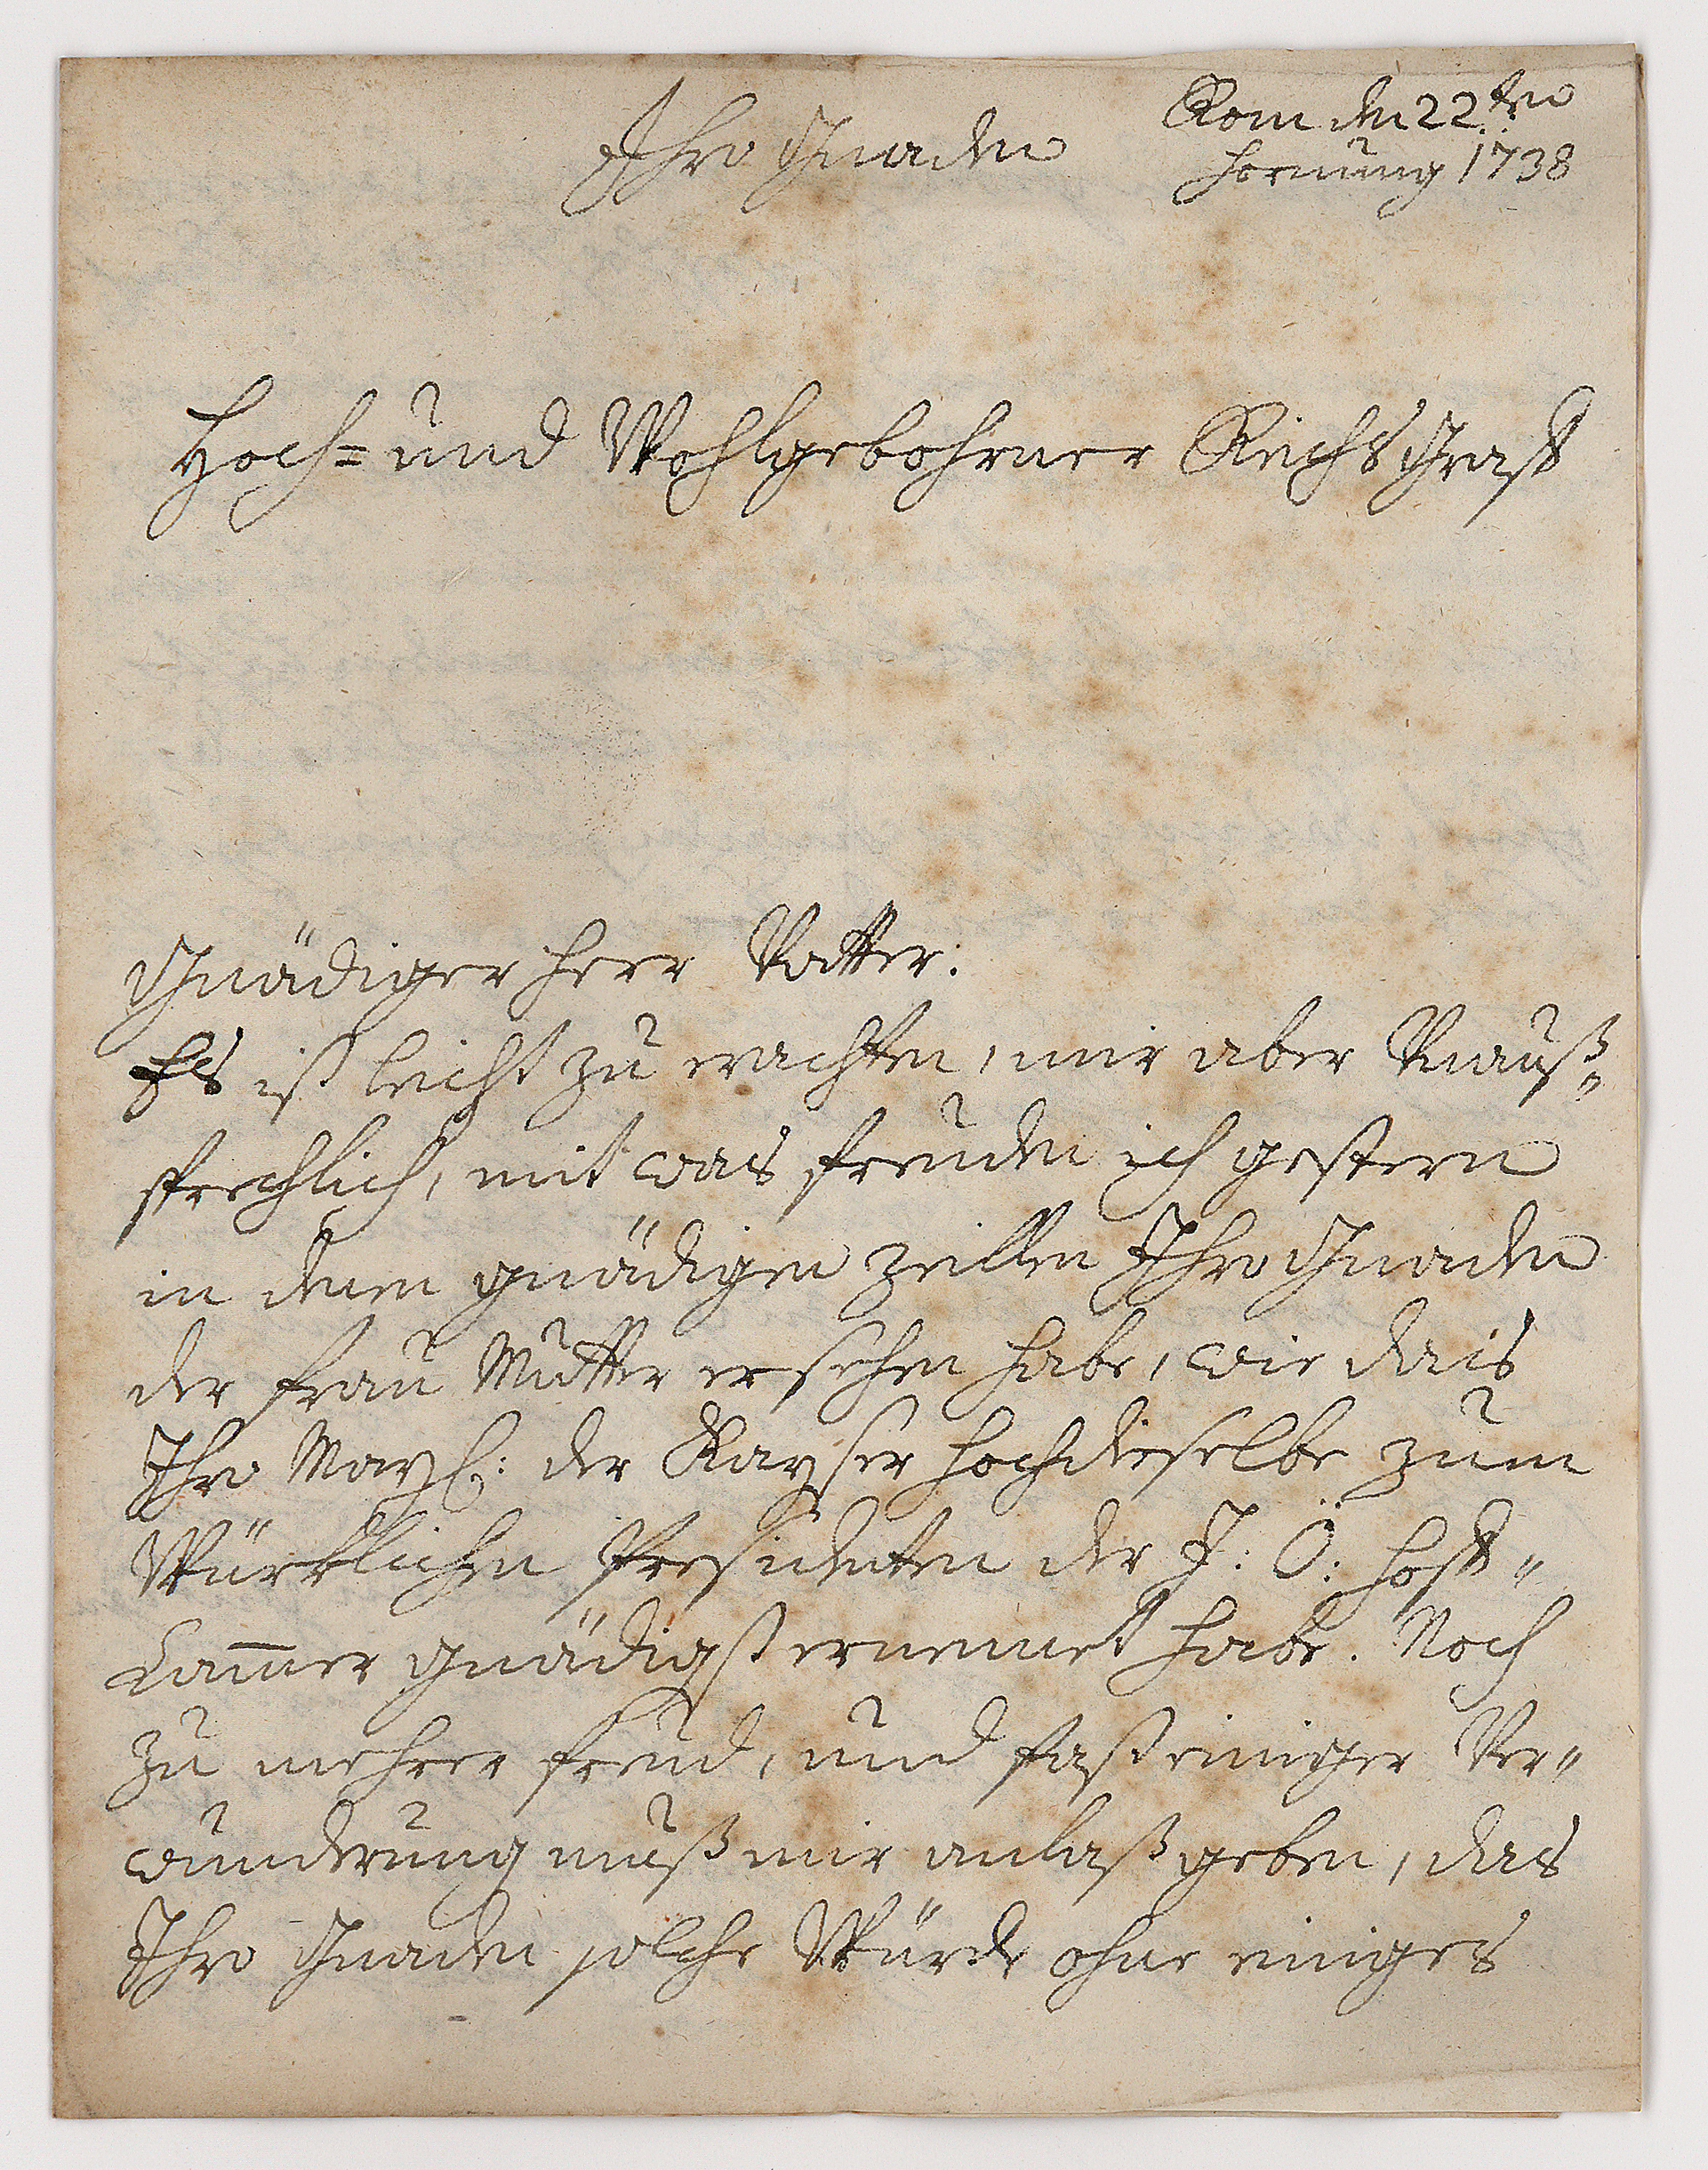 Ihro Gnaden
Rom den 22ten
Hornung 1738
Hoch= und Wohlgebohrner Reichs Graff
Gnädiger Herr Vatter:
Es ist leicht zu erachten, mir aber Unauß=
sprechlich, mit was Freuden ich gestern
in denen gnädigen Zeillen Ihro Gnaden
der Frau Mutter ersehen habe, wie dais
Ihro May: der Kayser Hochdieselbe zum
Würcklichen Presidenten der I: Ö: Hoff=
Cam̅er gnädigst ernennet habe. Noch
zu mehrer Freud, und fast einiger Ver=
wunderung muß mir anlaß geben, das
Ihro Gnaden solche Würde ohne einiges